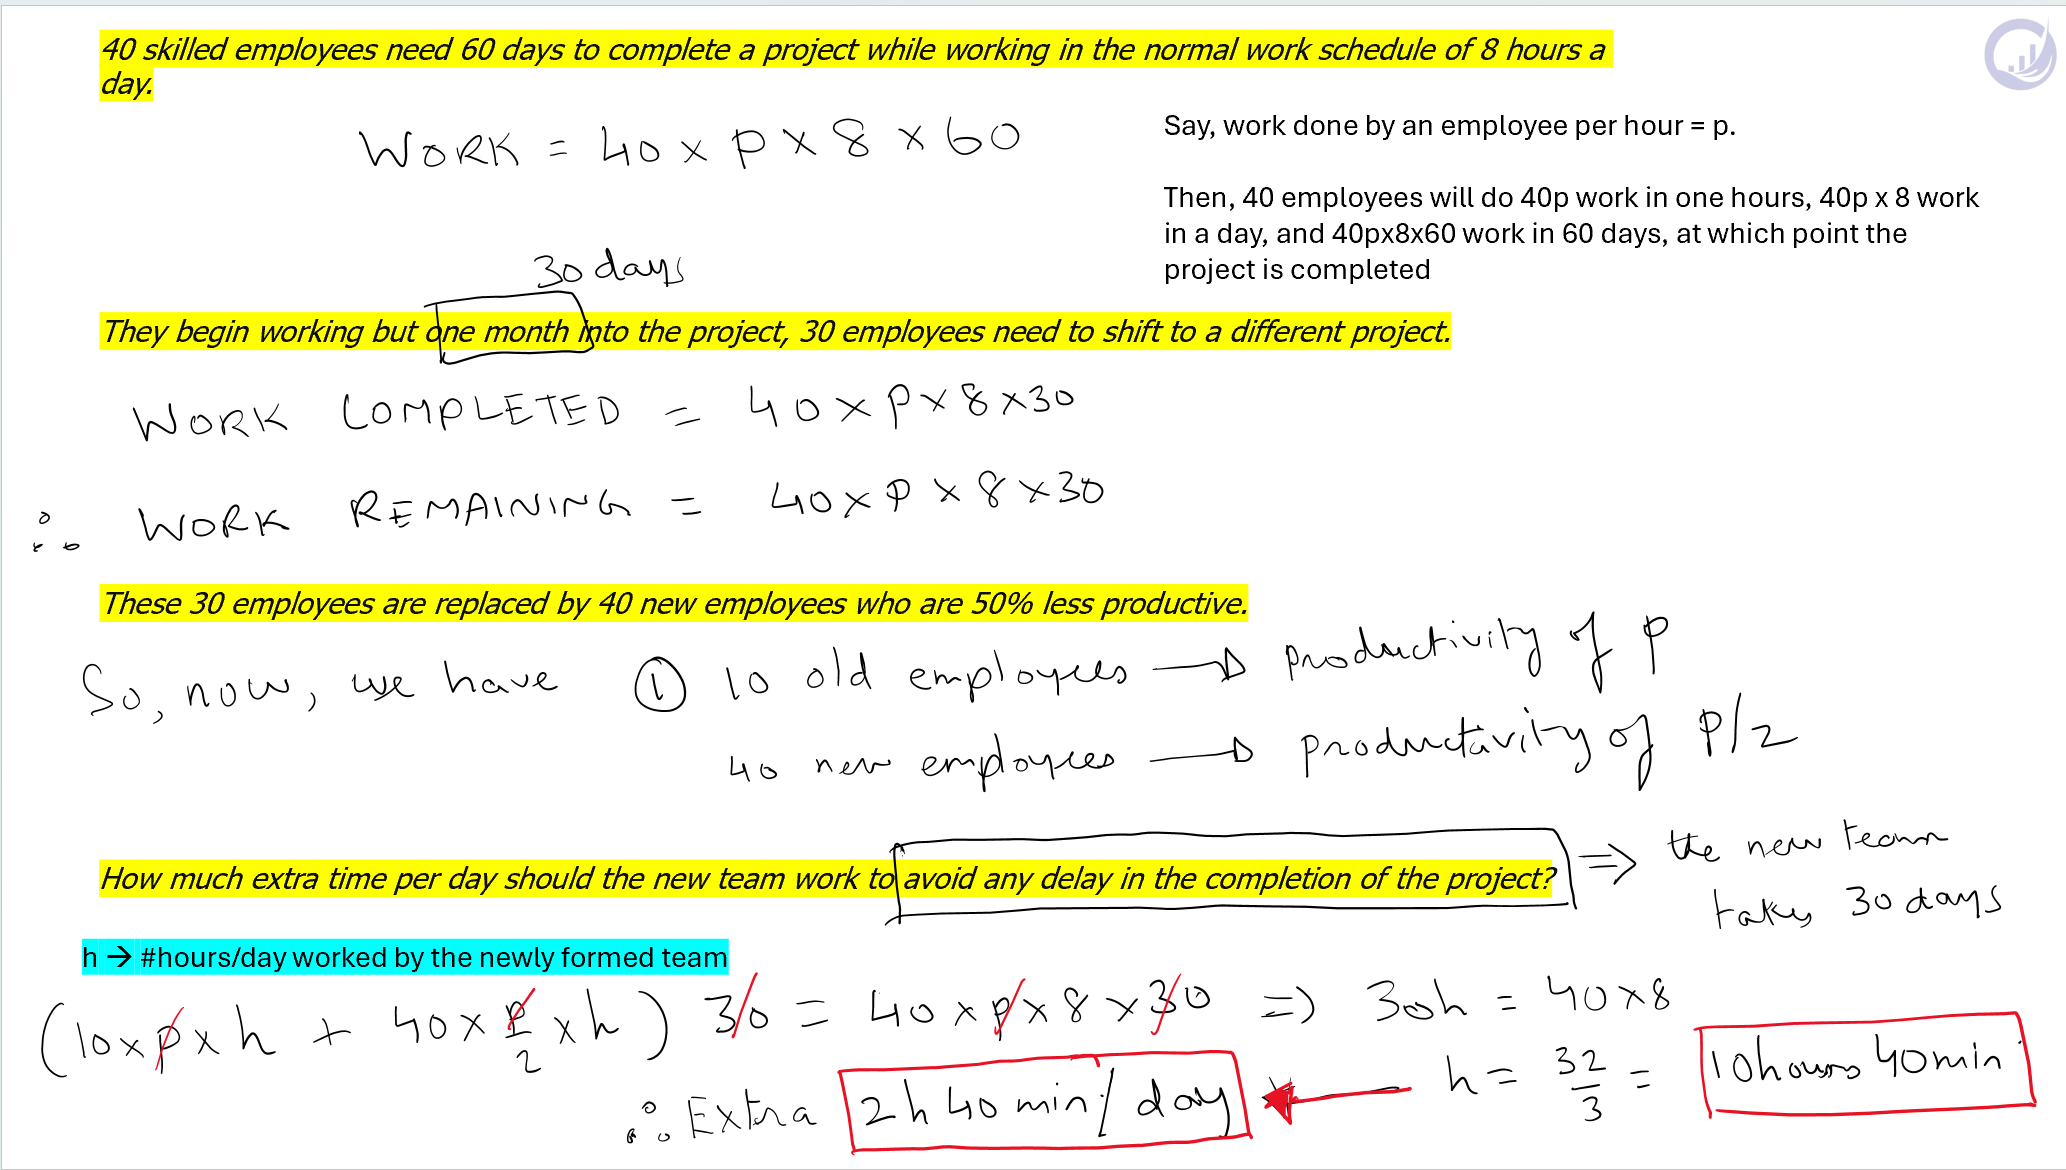 40 skilled employees need 60 days to complete a project while working in the normal work schedule of 8 hours a
day.
WORK = 40 x p x 8 x 60
Say, work done by an employee per hour = p.
Then, 40 employees will do 40p work in one hours, 40p x 8 work
in a day, and 40px8x60 work in 60 days, at which point the
project is completed
30 days
They begin working but one month into the project, 30 employees need to shift to a different project.
WORK COMPLETED = 40 x p x 8 x 30
∴ WORK REMAINING = 40 x p x 8 x 30
These 30 employees are replaced by 40 new employees who are 50% less productive.
So, now, we have ① 10 old employees → productivity of p
40 new employees → productivity of p/2
How much extra time per day should the new team work to avoid any delay in the completion of the project? ⇒ the new team
takes 30 days
h → #hours/day worked by the newly formed team
(10 x p x h + 40 x p/2 x h) 30 = 40 x p x 8 x 30 ⇒ 30h = 40 x 8
h = 32/3 = 10hours 40min
∴ Extra 2h 40 min / day